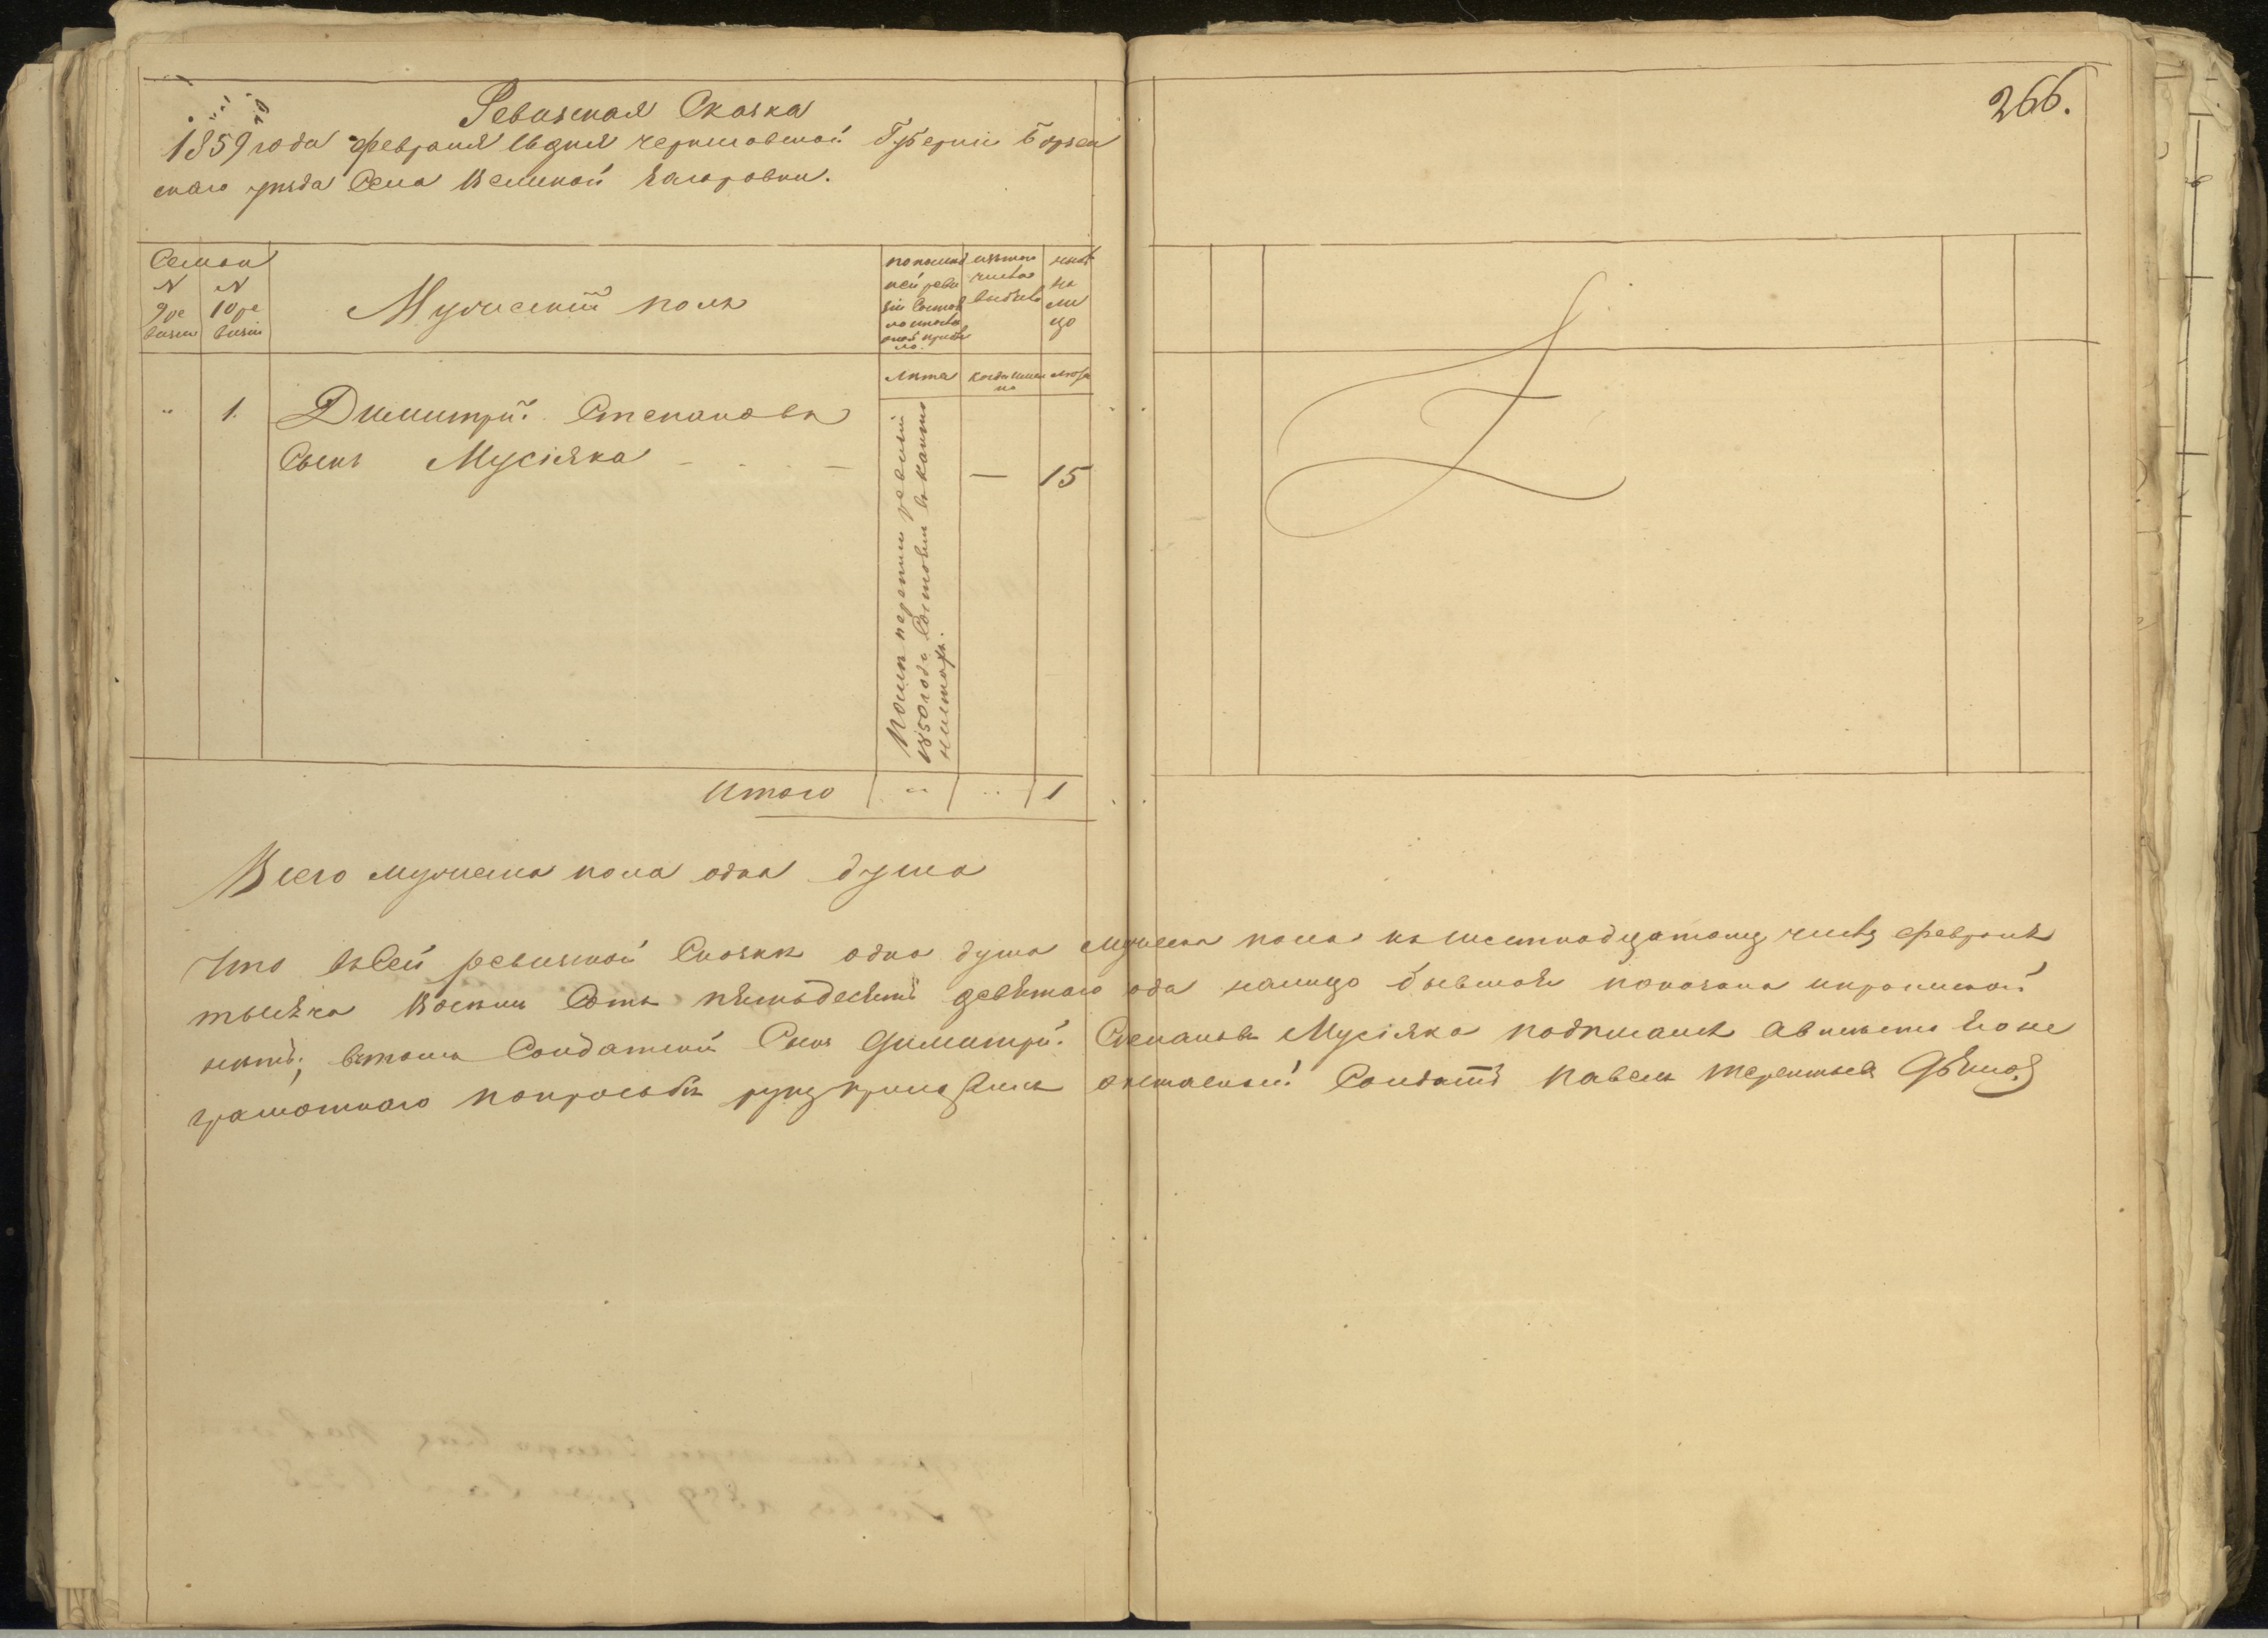 266.
Ревизская Сказка
1859 года февраля 16 дня черниговской Губерніи Борзен
скаго уѣзда Села Великой Загоровки.
Семьи
№ №
9 ре 10 ре
визіи визіи
Мужескій полъ
по послѣд
ней реви
зіи состоя
ло и послѣ
оной прибы
ло.
изъ того
числа
выбыло
нынѣ
на
ли
цо
лѣта
когда имен
но
лѣта
" 1. Димитрій Степановъ
Сынъ Мусіяка — 15
Послѣ переписи ревизіи
1850 года Состоялъ въ кантонистахъ.
Итого " " 1
Всего мужеска пола одна душа
Что въ Сей ревизской Сказкѣ одна душа мужеска пола къ шестнадцатому числу февраля
тысяча восемь Сотъ пятьдесятъ девятаго года налицо бывшая показана и прописной
нѣтъ; въ томъ Солдатскій Сынъ Димитрій Степановъ Мусіяка подписался а вмѣсто его не
грамотнаго по просьбѣ руку приложилъ отставной Солдатъ Павелъ Терентьевъ